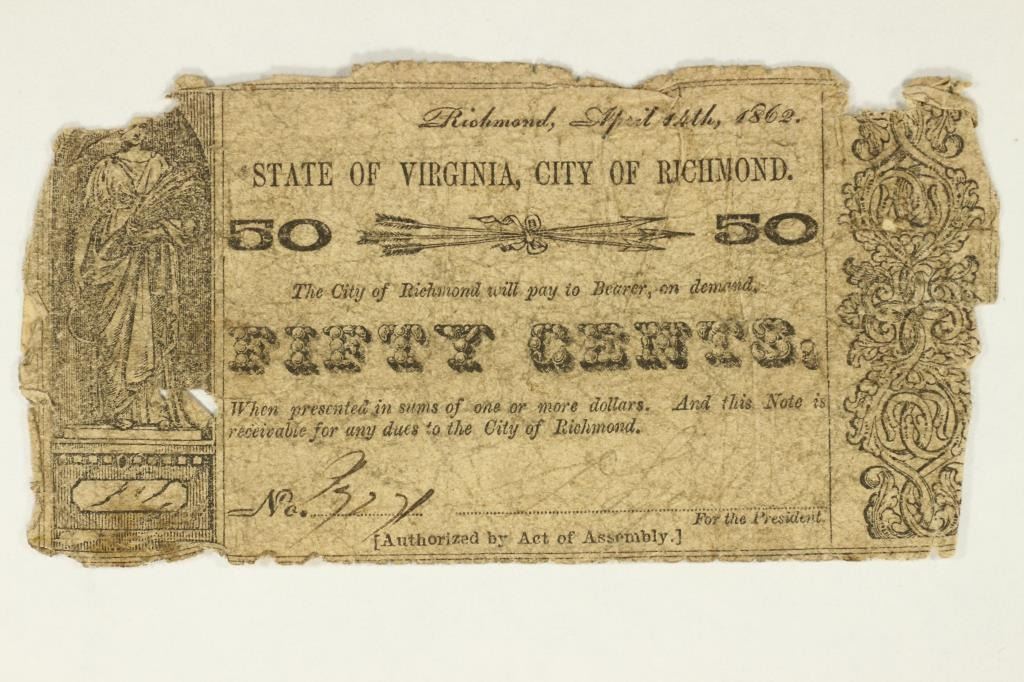 Richmond, April 14th, 1862.
STATE OF VIRGINIA, CITY OF RICHMOND.
50 50
The City of Richmond will pay to Bearer, on demand,
FIFTY CENTS,
When presented in sums of one or more dollars. And this Note is
receivable for any dues to the City of Richmond.
No.
For the President
[Authorized by Act of Assembly.]